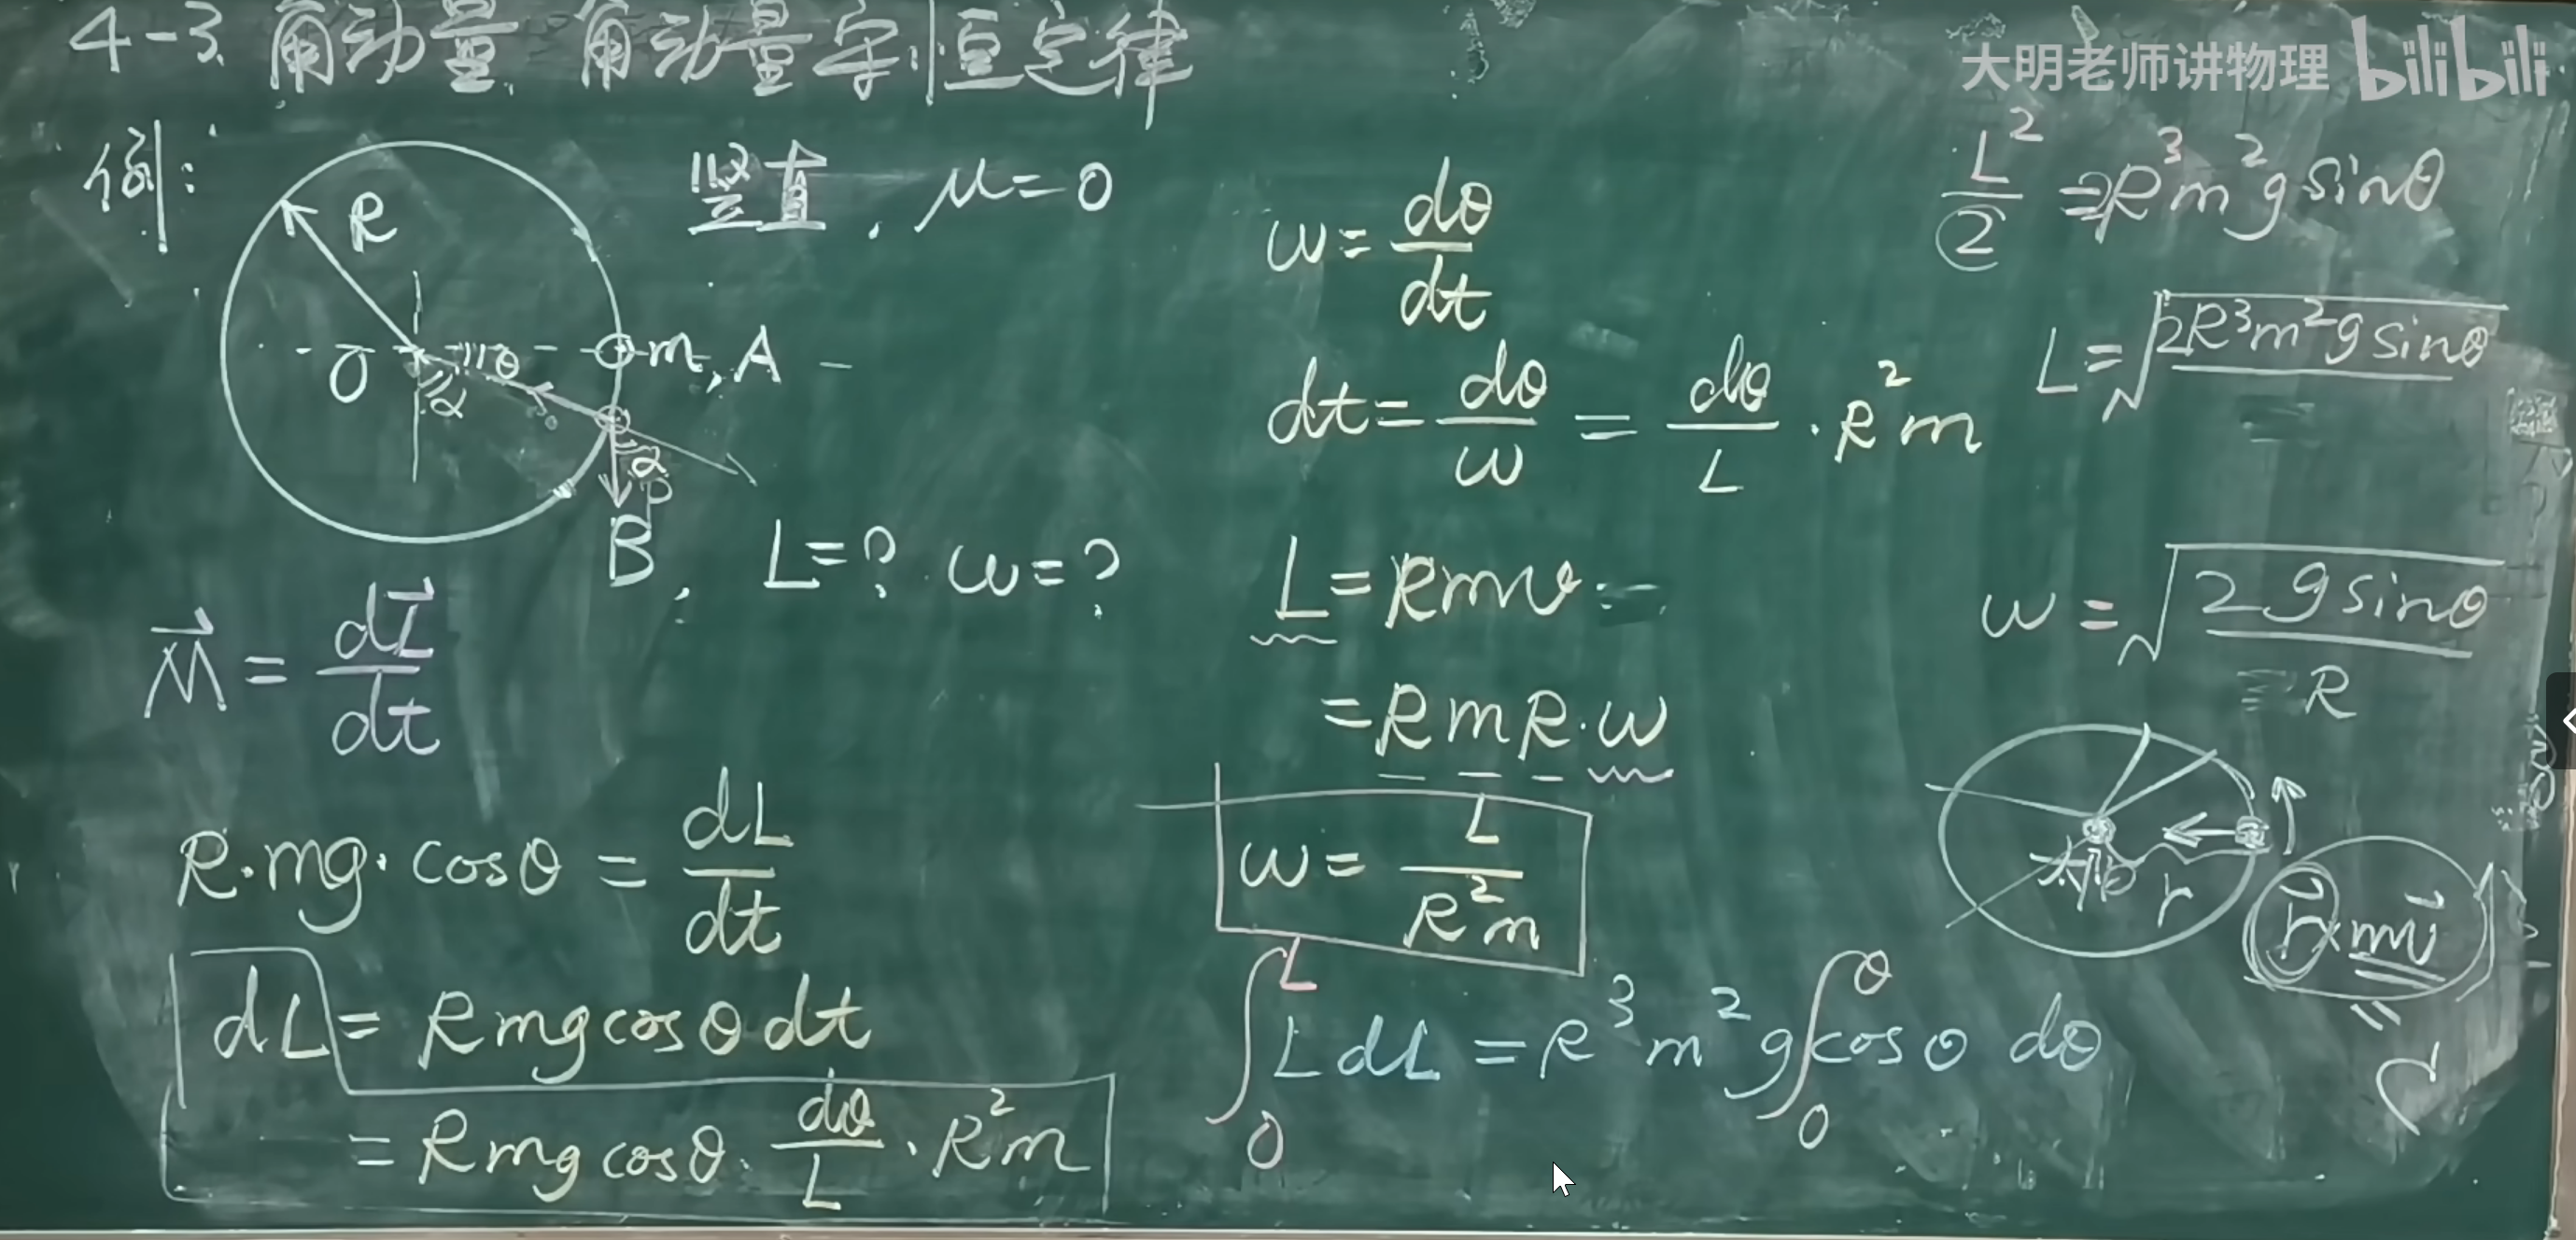 4-3. 角动量 角动量守恒定律
大明老师讲物理 bilibili
例:
R
O
θ
α
m, A
α
P
B
竖直, μ=0
L=? ω=?
M⃗ = dL⃗/dt
R·mg·cosθ = dL/dt
dL = Rmgcosθdt
= Rmgcosθ·dθ/L·R²m
ω = dθ/dt
dt = dθ/ω = dθ/L·R²m
L = Rmv
= RmR·ω
ω = L/R²m
∫₀ᴸ LdL = R³m²g∫₀^θ cosθ dθ
L²/2 = R³m²gsinθ
L = √2R³m²gsinθ
ω = √2gsinθ/R
太阳
r
r⃗×mv⃗